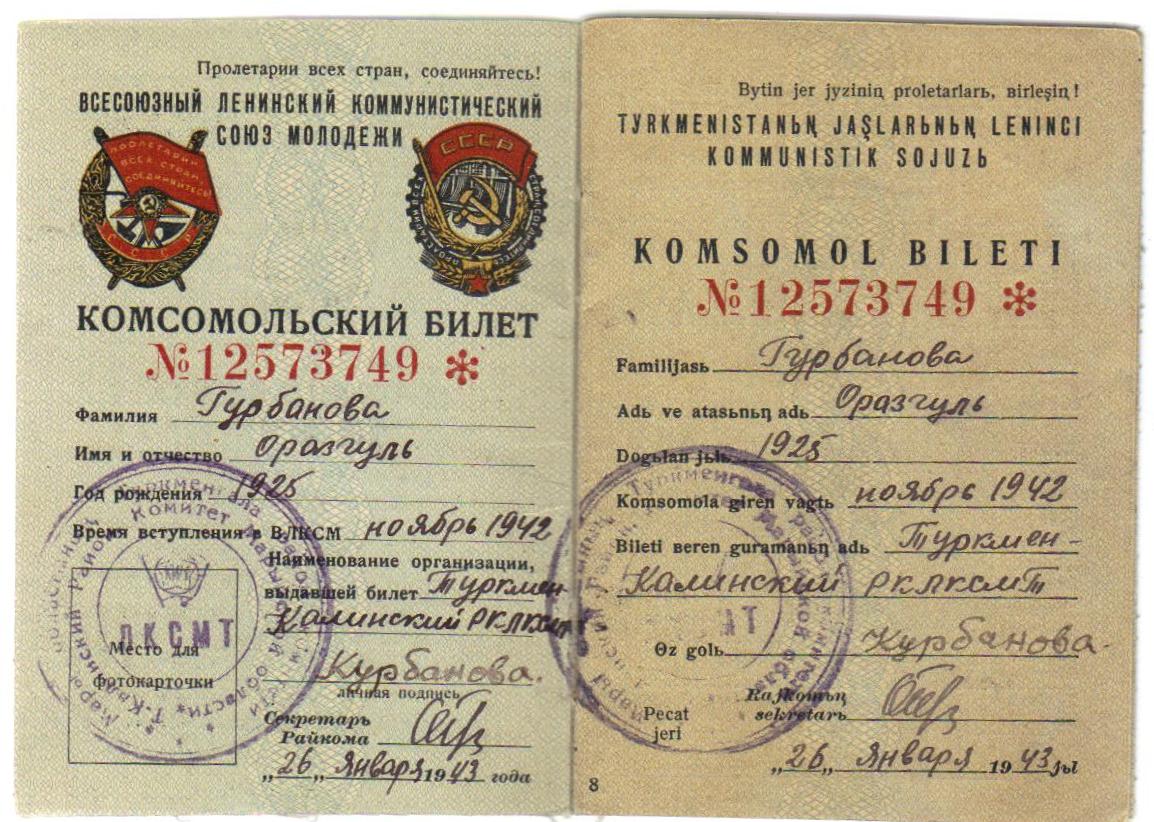 Пролетарии всех стран, соединяйтесь!
ВСЕСОЮЗНЫЙ ЛЕНИНСКИЙ КОММУНИСТИЧЕСКИЙ
СОЮЗ МОЛОДЕЖИ
ПРОЛЕТАРИИ
ВСЕХ СТРАН,
СОЕДИНЯЙТЕСЬ!
СССР
СССР
КОМСОМОЛЬСКИЙ БИЛЕТ
№12573749 *
Фамилия Гурбанова
Имя и отчество Оразгуль
Год рождения 1925
Время вступления в ВЛКСМ ноябрь 1942
Наименование организации,
выдавшей билет Туркмен-
Калинский РКЛКСМТ
Место для
фотокарточки
ЛКСМТ
Курбанова.
личная подпись
Секретарь
Райкома
„26„ января 1943 года
Bytin jer jyziniꞑ proletarlarь, ʙirleşiꞑ!
TYRKMENISTANЬꞐ JAŞLARЬNЬꞐ LENINCI
KOMMUNISTIK SOJUZЬ
KOMSOMOL BILETI
№12573749 *
Familijasь Гурбанова
Adь ve atasьnьꞑ adь Оразгуль
Dogьlan jьlь 1925
Komsomola giren vagtь ноябрь 1942
Bileti ʙeren guramanьꞑ adь Туркмен-
Калинский РКЛКСМТ
Ɵz golь Курбанова.
Pecat
jeri
Rajkomьꞑ
sekretarь
„26„ января 1943 jьl
8